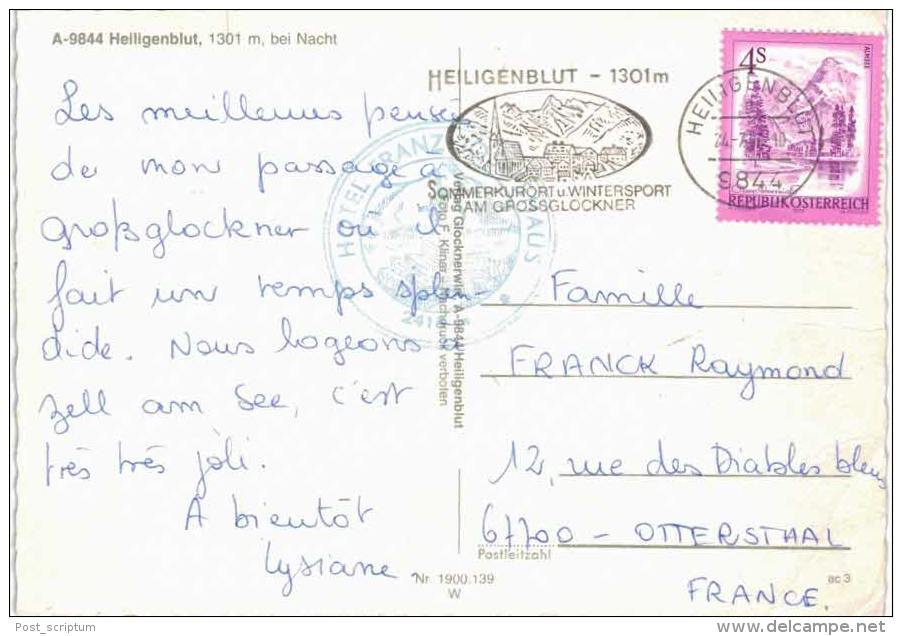 A-9844 Heiligenblut, 1301 m, bei Nacht
Les meilleures pensées
de mon passage à
Großglockner où il
fait un temps splen-
dide. Nous logeons à
Zell am See, c'est
très très joli.
A bientôt
Lysiane
HEILIGENBLUT - 1301m
SOMMERKURORT u. WINTERSPORT
AM GROSSGLOCKNER
HEILIGENBLUT
9844
4S
ALMSEE
REPUBLIK ÖSTERREICH
HOTEL FRANZ
HAUS
Verlag Glocknerwirt, A-9844 Heiligenblut
Foto F. Klinar
verboten
Famille
FRANCK Raymond
12, rue des Diables bleus
67700 - OTTERSTHAL
Postleitzahl
FRANCE.
Nr. 1900.139
W
ac 3
Post_scriptum
delcampe.net